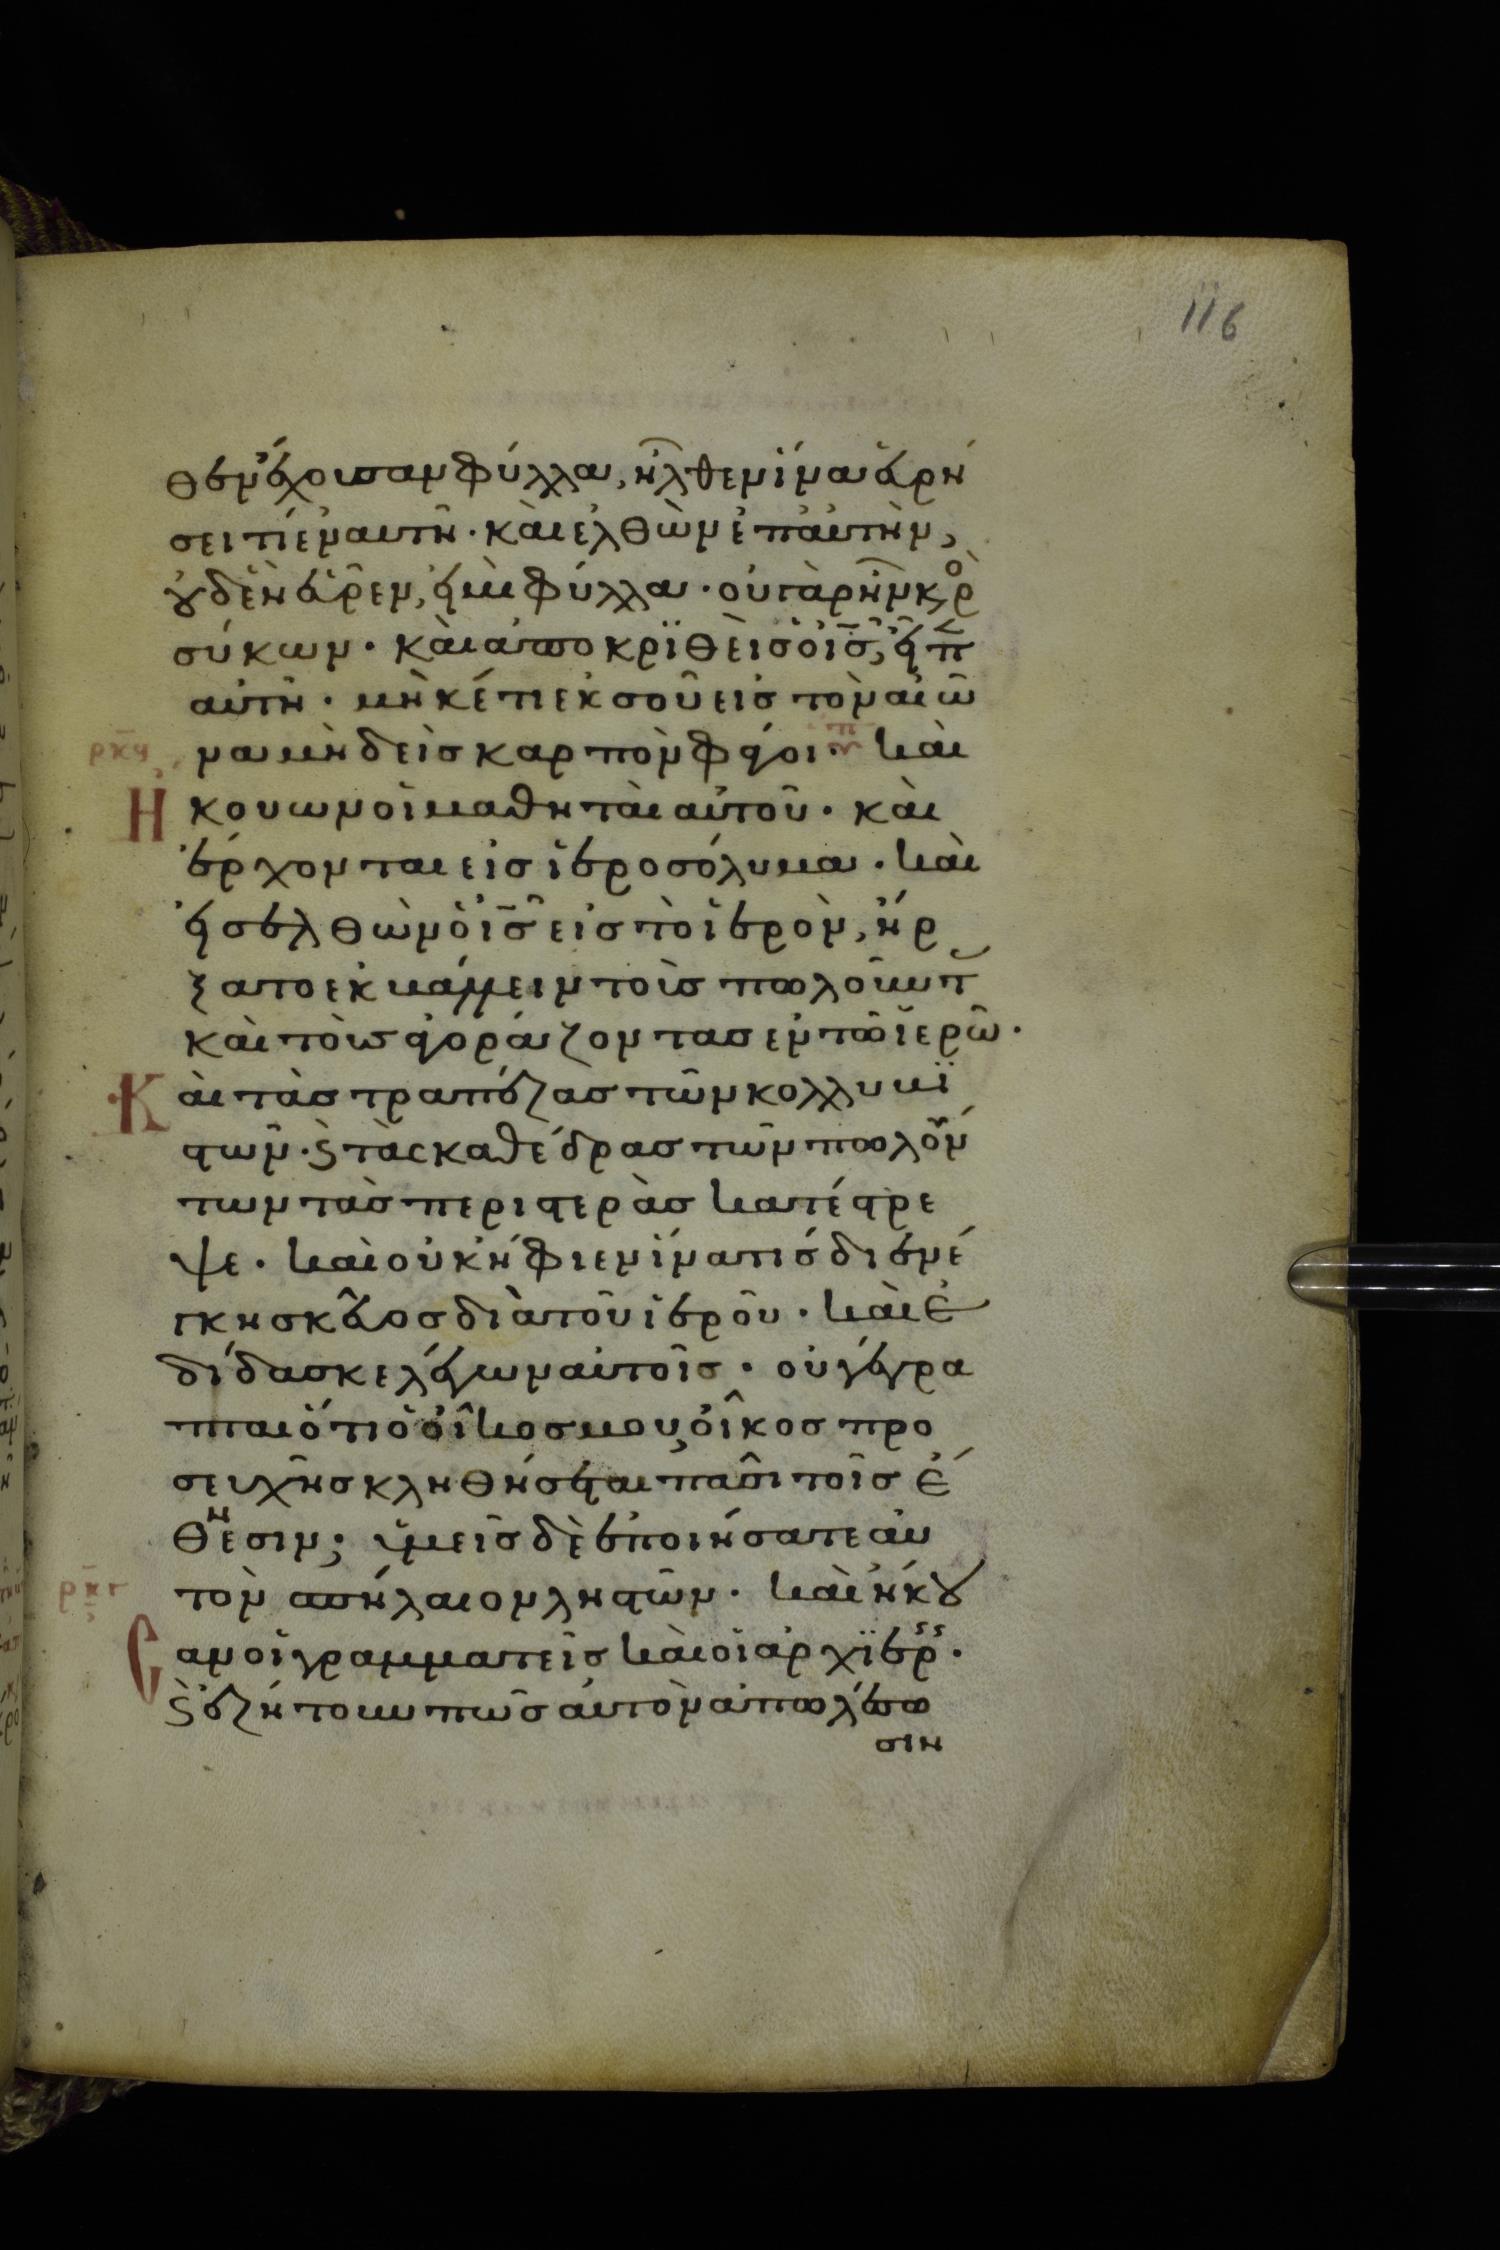 116
θεν ἔχουσαν φύλλα, ἦλθεν ἵνα ἑυρή
σει τί ἐν αυτῆ · καὶ ἐλθὼν ἐπ ἀυτὴν,
ȣ̓δὲν ἑῦρεν, εἰμὴ φύλλα · οὐ γὰρ ἦν κρὸ
σύκων · καὶ αποκρϊθεὶς ὁ ις̅, εἶπ
αὐτῆ · μὴκέτι ἐκ σοῦ εἰς τὸν αἰῶ
να μηδεὶς καρπὸν φάγοι · καὶ
ρκ̅
ἤκουων οἱ μαθηταὶ αὐτοῦ · καὶ
ἔρχονται εἰς ἱεροσόλυμα · καὶ
ἐισελθὼν ὁ ις̅ εἰς τὸ ἱερὸν, ἤρ
ξατο ἐκβάλλειν τοὺς πωλοῦντ
καὶ τοὺς ἀγοράζοντας ἐν τῶ ἱερῶ ·
Καὶ τὰς τραπέζας τῶν κολλυβϊ
στῶν · ϛ τὰς καθέδρας τῶν πωλούν
των τὰς περιστερὰς κατέστρε
ψε · καὶ οὐκ ἤφιεν ἵνα τίς διενέ
γκη σκεῦος διὰ τοῦ ἱεροῦ · καὶ ἐ
δίδασκε λέγων αὐτοῖς · οὐ γέγρα
πται ὅτι ὁ οἶκος μου, οἶκος προ
σευχῆς κληθήσεται πᾶσι τοῖς ἔ
θνεσιν; ὑμεῖς δὲ ἐποιήσατε αὐ
τὸν σπήλαιον ληστῶν · καὶ ἤκȣ
ρκ̅
Σαν οἱ γραμματεῖς καὶ οἱ ἀρχϊερ ·
ϛ ἐζήτουν πῶς αὐτὸν ἀπωλέσω
σιν